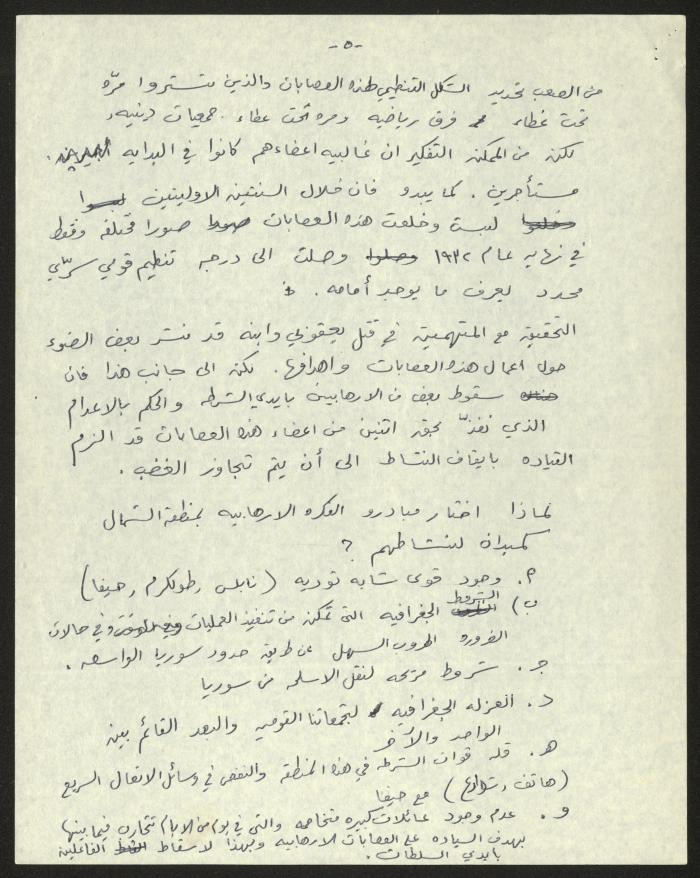 -٥-
من الصعب تحديد الشكل التنظيمي لهذه العصابات والذين تستروا مرّه
تحت غطاء فرق رياضيه ومره تحت غطاء جمعيات دينيه،
لكن من الممكن التفكير ان غالبيه اعضاءهم كانوا في البدايه
مستأجرين. كما يبدو فان خلال السنتين الاوليتين
لبست وخلعت هذه العصابات صورا مختلفه وفقط
في نهايه عام ١٩٣٢ وصلت الى درجه تنظيم قومي سرّي
محدد يعرف ما يوجد أمامه.
التحقيق مع المتهمين في قتل يعقوبي وابنه قد نشر بعض الضوء
حول اعمال هذه العصابات واهدافها. لكن الى جانب هذا فان
سقوط بعض من الارهابيين بايدي الشرطه والحكم بالاعدام
الذي نفذّ بحق اثنين من اعضاء هذه العصابات قد الزم
القياده بايقاف النشاط الى أن يتم تجاوز الغضب.
لماذا اختار مبادرو الفكره الارهابيه بمنطقة الشمال
كميدان لنشاطهم ؟
أ. وجود قوى شابه ثوريه (نابلس، طولكرم، حيفا)
ب) الشروط الجغرافيه التي تمكن من تنفيذ العمليات وفي حالات
الضروره الهروب السهل عن طريق حدود سوريا الواسعه.
جـ. شروط مريحه لنقل الاسلحه من سوريا
د. العزله الجغرافيه لتجمعاتنا القوميه والبعد القائم بين
الواحد والآخر
هـ. قله قوات الشرطه في هذه المنطقه والنقص في وسائل الاتصال السريع
(هاتف، شوارع) مع حيفا
و. عدم وجود عائلات كبيره متخاصمه والتي في يوم من الايام تتحارب فيما بينها
بهدف السياده على العصابات الارهابيه وبهذا لاسقاط الفاعلين
بايدي السلطات.